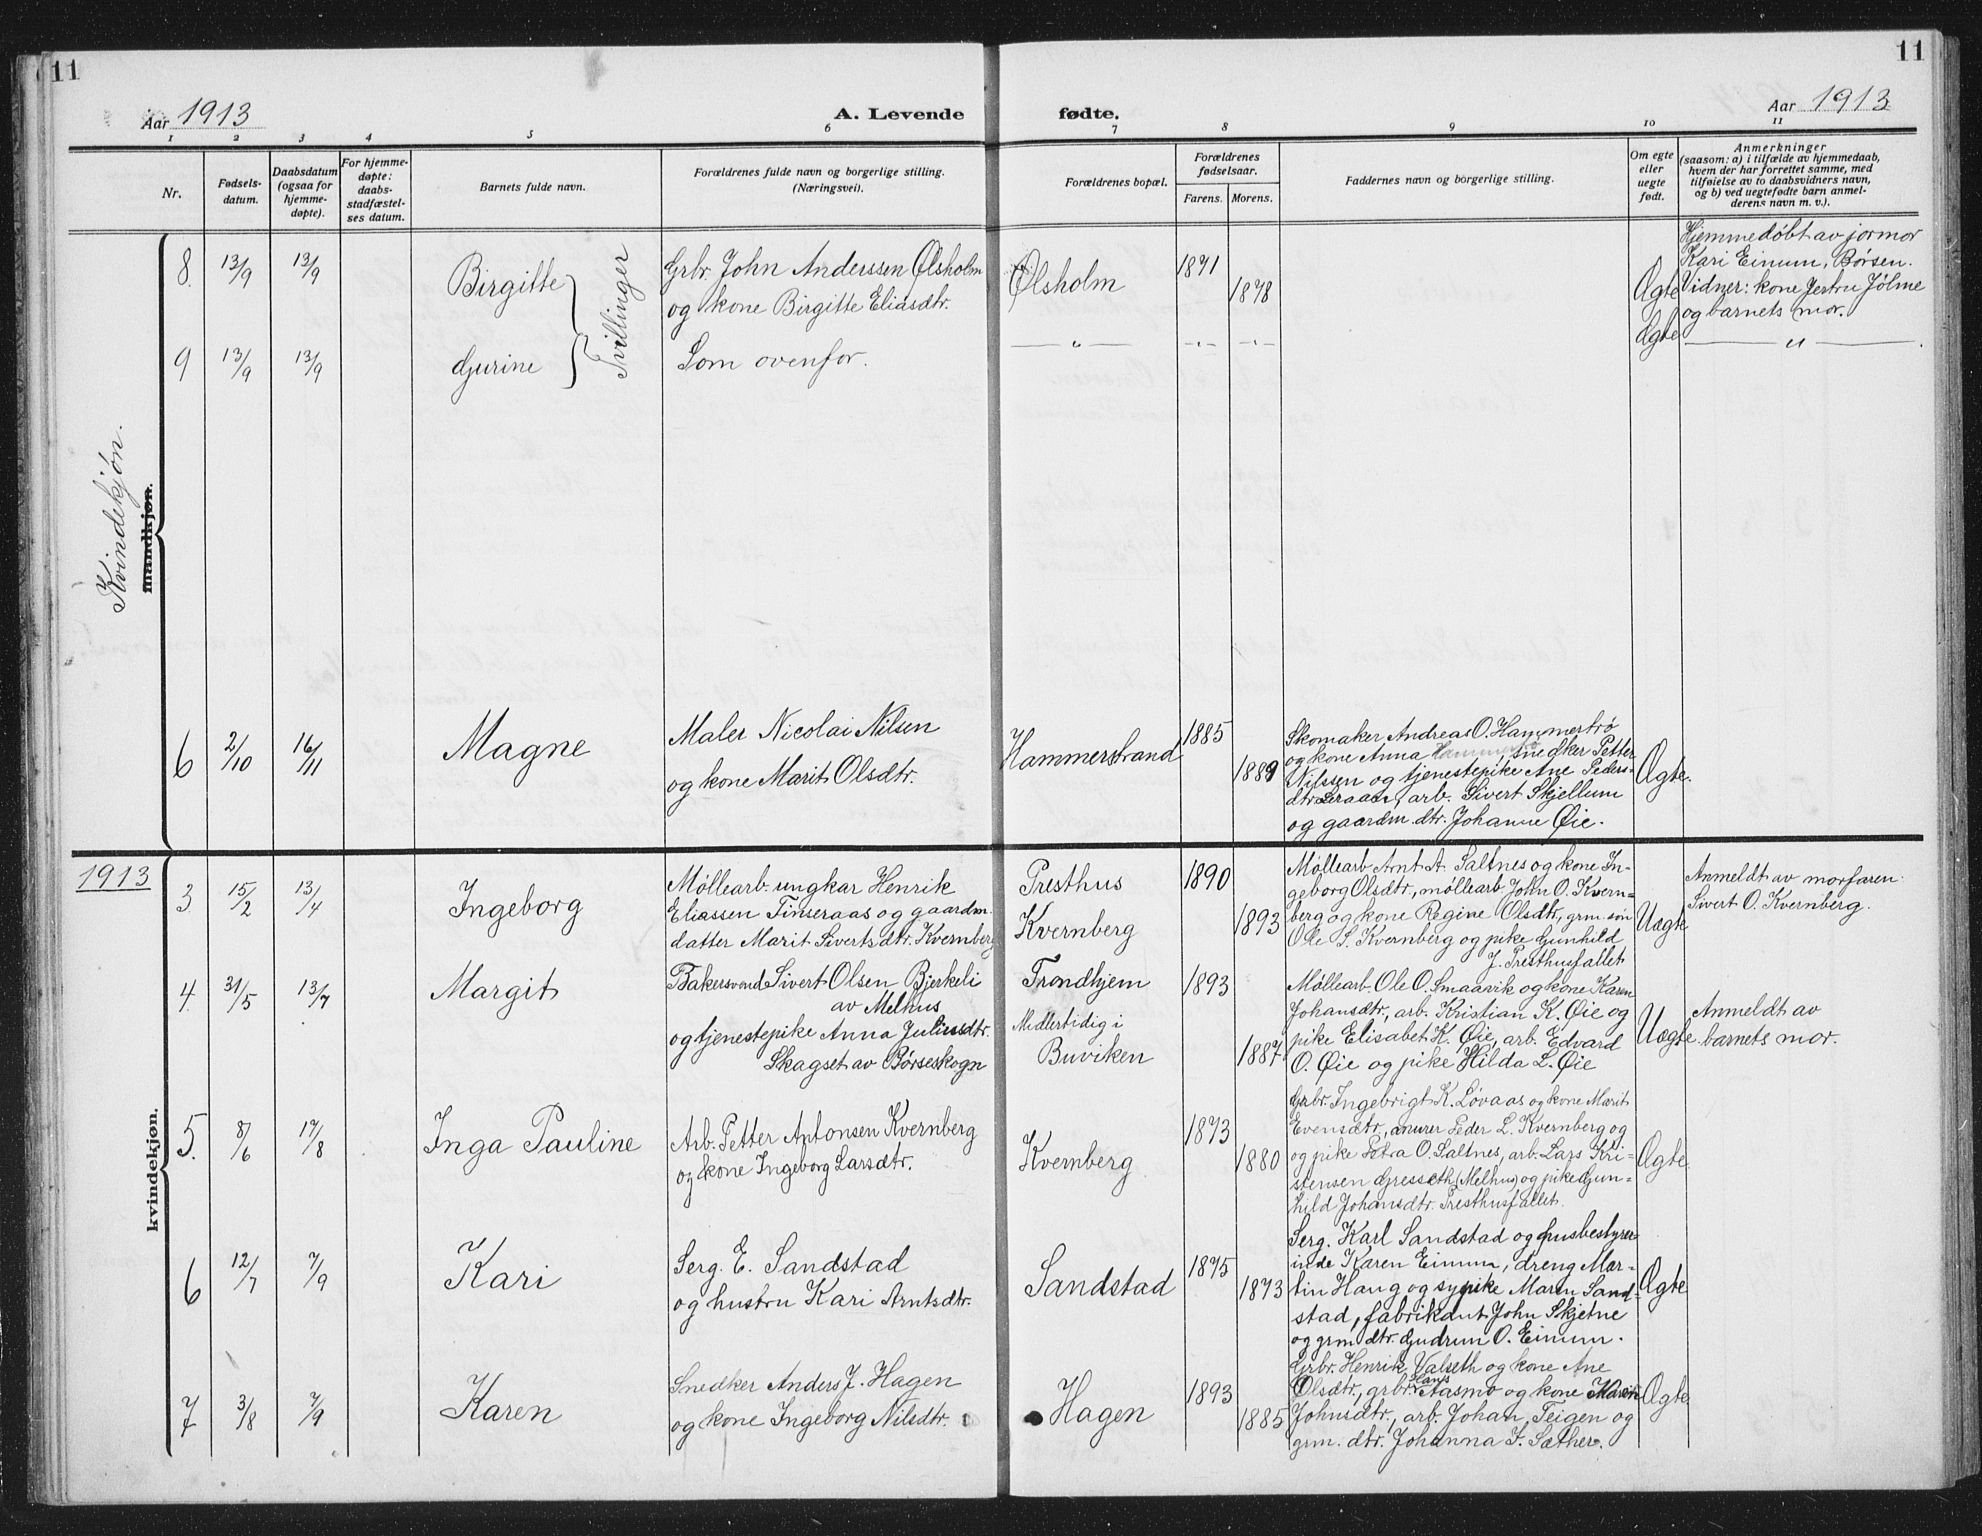 11
11
Aar 1913
A. Levende fødte.
Aar 1913
1 2 3 4 5 6 7 8 9 10 11
Nr.
Fødsels-
datum.
Daabsdatum
(ogsaa for
hjemme-
døpte).
For hjemme-
døpte:
daabs-
stadfæstel-
ses datum.
Barnets fulde navn.
Forældrenes fulde navn og borgerlige stilling.
(Næringsvei).
Forældrenes bopæl.
Forældrenes
fødselsaar.
Farens. Morens.
Faddernes navn og borgerlige stilling.
Om egte
eller
uegte
født.
Anmerkninger
(saasom: a) i tilfælde av hjemmedaab,
hvem der har forrettet samme, med
tilføielse av to daabsvidners navn,
og b) ved uegtefødte barn anmel-
derens navn m. v.).
Kvindekjøn.
mandkjøn.
8. 13/9 13/9
Birgitte
Tvillinger
Grbr. John Anderssen Ølsholm
og kone Birgitte Eliasdtr.
Ølsholm
1871
1878
Ægte
Hjemmedøbt av jormor
Kari Eimum, Børsen.
Vidner: kone Jertru Jølme
og barnets mor.
9 13/9 13/9
Gjurine
Som ovenfor.
— „ — -„- -„-
Ægte
— „ —
6 2/10 16/11
Magne
Maler Nicolai Nilsen
og kone Marit Olsdtr.
Hammerstrand
1885
1889
Skomaker Andreas O. Hammertrø
og kone Anna snedker Petter
Nilsen og tjenestepike Ane Peders-
dtr. arb. Sivert Skjellum
og gaardm. dtr. Johanne Øie.
Ægte.
1913
kvindekjøn.
3 15/2 13/4
Ingeborg
Møllearb. ungkar Henrik
Eliassen Tinseraas og gaardm.
datter Marit Sivertsdtr. Kvernberg
Presthus
Kvernberg
1890
1893
Møllearb. Arnt A. Saltnes og kone In-
geborg Olsdtr, møllearb John O. Kvern-
berg og kone Regine Olsdtr, grm. søn
Ole S. Kvernberg og pike Gunhild
J. Presthusfallet
Uægte
Anmeldt av morfaren:
Sivert O. Kvernberg.
4. 31/5 13/7
Margit
Bakersvend Sivert Olsen Bjerkeli
av Melhus
og tjenestepike Anna Juliusdtr.
Skagset av Børseskogn
Trondhjem
Midlertidig i
Buviken
1893
1887
Møllearb. Ole O. Smaavik og kone Karen
Johansdtr., arb. Kristian K. Øie og
pike Elisabet K. Øie, arb. Edvard
O. Øie og pike Hilda L. Øie
Uægte.
Anmeldt av
barnets mor.
5. 8/6 17/8
Inga Pauline
Arb. Petter Antonsen Kvernberg
og kone Ingeborg Larsdtr.
Kvernberg
1873
1880
Grbr. Ingebrigt K. Løvaas og kone Marit
Evensdtr, murer Peder L. Kvernberg og
og pike Petra O. Saltnes, arb. Lars Kri-
stensen Gresseth (Melhus) og pike Gjun-
hild Johansdtr. Presthusfallet.
Ægte.
6 12/7 7/9
Kari
Serg. E. Sandstad
og hustru Kari Arntsdtr.
Sandstad
1875
1873
Serg. Karl Sandstad og husbestyrer-
inde Karen Eimum, dreng Mar-
tin Haug og sypike Maren Sand-
stad, fabrikant John Skjetne
og grm. dtr. Gudrun O. Eimum.
Ægte
7 3/8 7/9
Karen
Snedker Anders J. Hagen
og kone Ingeborg Nilsdtr.
Hagen
1893
1885
Grbr. Henrik Valseth og kone Ane
Olsdtr., grbr. Hans Aasmo og kone Marit
Johnsdtr., arb. Johan Teigen og
grm. dtr. Johanna J. Sæther.
Ægte.